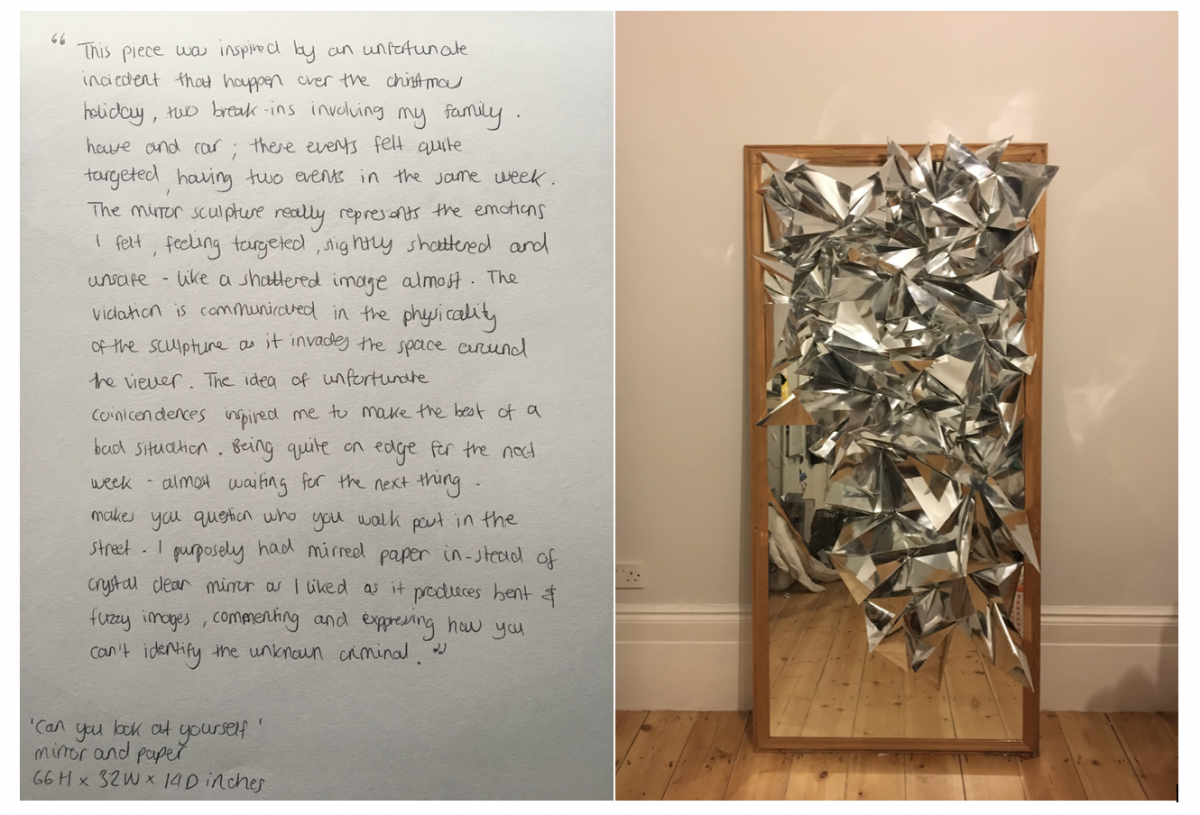 “ This piece was inspired by an unfortunate
inciedent that happen over the christmas
holiday, two break-ins involving my family.
house and car ; these events felt quite
targeted, having two events in the same week.
The mirror sculpture really represents the emotions
I felt, feeling targeted, slightly shattered and
unsafe - like a shattered image almost. The
violation is communicated in the physicality
of the sculpture as it invades the space around
the viewer. The idea of unfortunate
coinicendences inspired me to make the best of a
bad situation. Being quite on edge for the next
week - almost waiting for the next thing.
makes you question who you walk past in the
street. I purposely had mirred paper in-stead of
crystal clear mirror as I liked as it produces bent &
fuzzy images, commenting and expressing how you
can't identify the unknown criminal. ”
'Can you look at yourself'
mirror and paper
66H x 32W x 14D inches